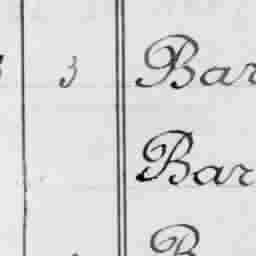 3 3 Bar
Bar
B